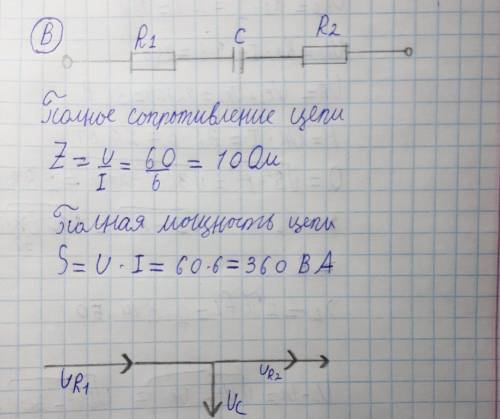 В
R1 C R2
Полное сопротивление цепи
Z = U/I = 60/6 = 10 Ом
Полная мощность цепи
S = U · I = 60·6 = 360 ВА
UR1 UR2
UC